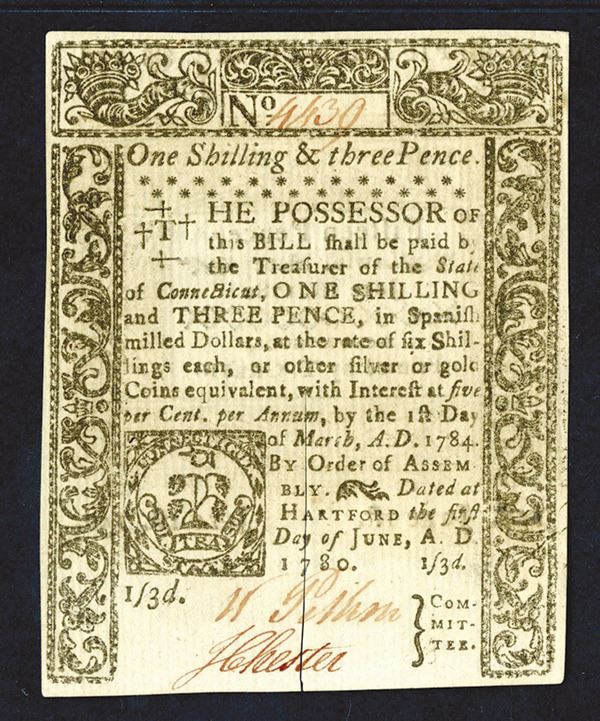 No 4439
One Shilling & three Pence.
THE POSSESSOR OF
this BILL ſhall be paid by
the Treaſurer of the State
of Connecticut, ONE SHILLING
and THREE PENCE, in Spaniſh
milled Dollars, at the rate of ſix Shil-
lings each, or other ſilver or gold
Coins equivalent, with Intereſt at five
per Cent. per Annum, by the 1ſt Day
of March, A.D. 1784.
By Order of ASSEM-
BLY. Dated at
HARTFORD the firſt
Day of JUNE, A. D.
1780. 1/3d.
1/3d.
COM-
MIT-
TEE.
J Chester